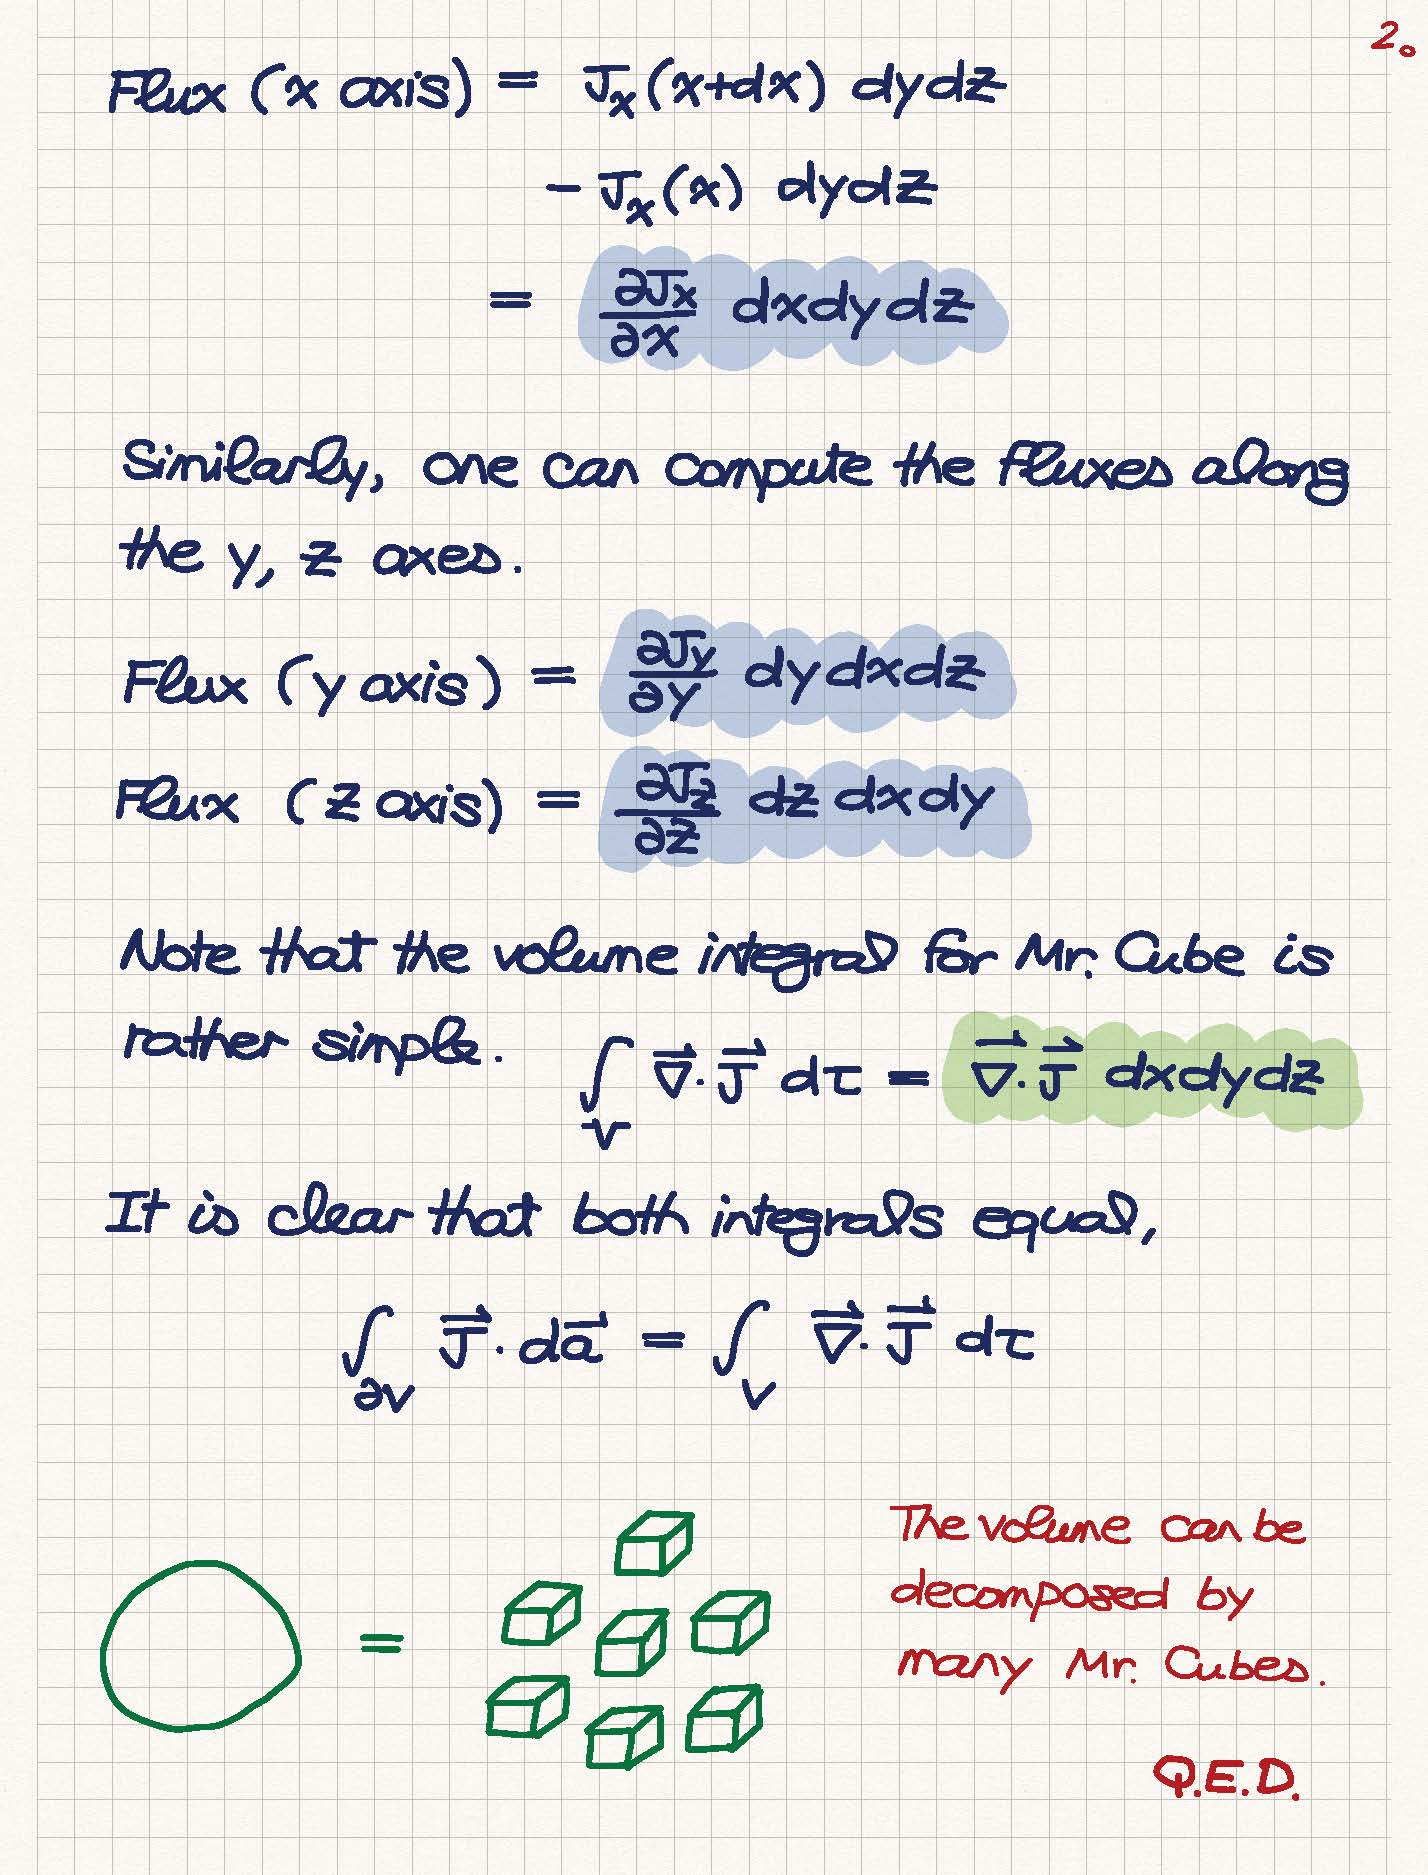 2.
Flux (x axis) = Jₓ(x+dx) dydz
- Jₓ(x) dydz
= ∂Jₓ/∂x dxdydz
Similarly, one can compute the fluxes along
the y, z axes.
Flux (y axis) = ∂J_y/∂y dydxdz
Flux (z axis) = ∂J_z/∂z dzdxdy
Note that the volume integral for Mr. Cube is
rather simple. ∫_V ∇⃗·J⃗ dτ = ∇⃗·J⃗ dxdydz
It is clear that both integrals equal,
∫_∂V J⃗·da⃗ = ∫_V ∇⃗·J⃗ dτ
=
The volume can be
decomposed by
many Mr. Cubes.
Q.E.D.